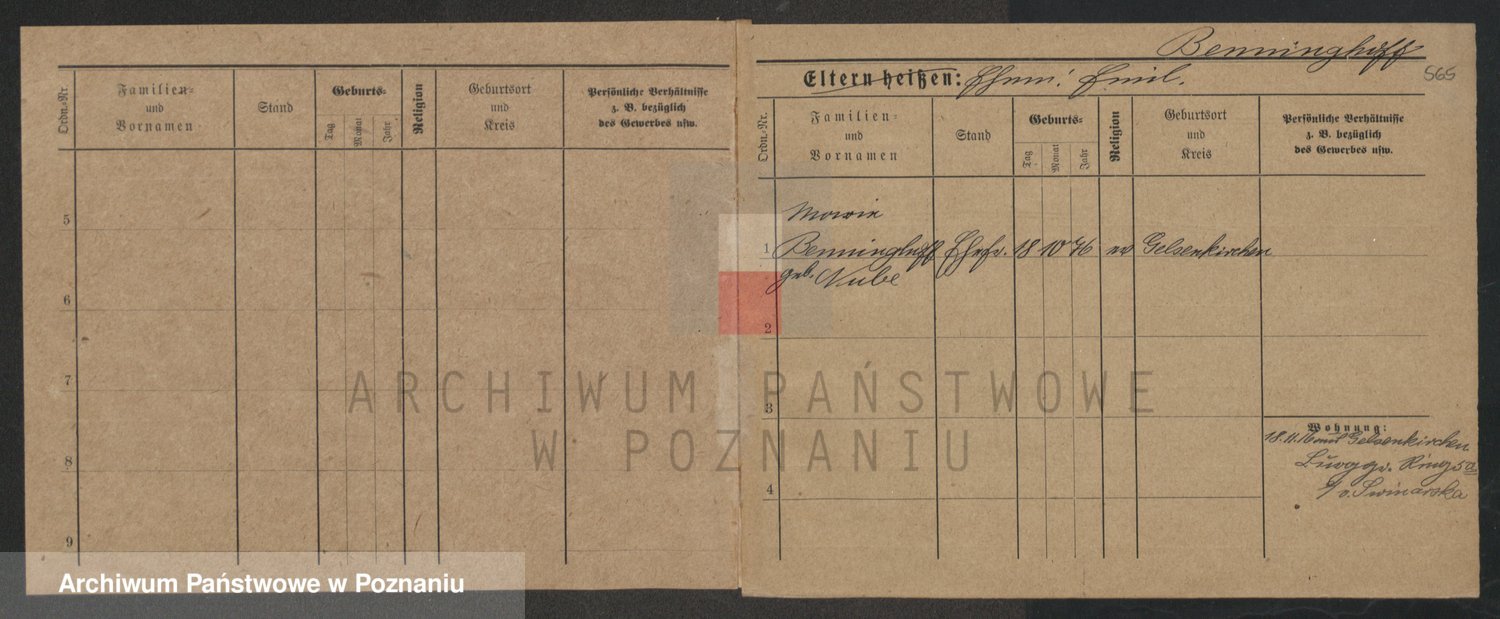 Ordn.-Nr.
Familien-
und
Vornamen
Stand
Geburts-
Tag
Monat
Jahr
Religion
Geburtsort
und
Kreis
Persönliche Verhältnisse
z. B. bezüglich
des Gewerbes usw.
5
6
7
8
9
Benninghoff
565
Eltern heißen: Ehem: Emil.
Ordn.-Nr.
Familien-
und
Vornamen
Stand
Geburts-
Tag
Monat
Jahr
Religion
Geburtsort
und
Kreis
Persönliche Verhältnisse
z. B. bezüglich
des Gewerbes usw.
Marie
1 Benninghoff Ehefr. 18 10 76 ev Gelsenkirchen
geb. Nube
2
3
4
Wohnung:
18.11.16 aus Gelsenkirchen
Burggr. Ring 5a
b/ v. Swinarska
ARCHIWUM PAŃSTWOWE
W POZNANIU
Archiwum Państwowe w Poznaniu